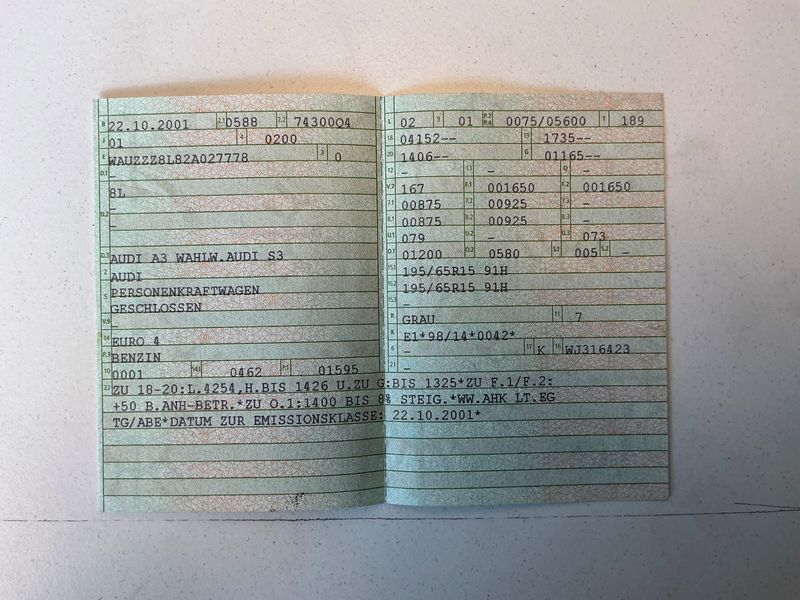 B 22.10.2001 2.1 0588 2.2 74300Q4
J 01 4 0200
E WAUZZZ8L82A027778 3 0
D.1 -
8L
-
D.2 -
D.3 AUDI A3 WAHLW.AUDI S3
2 AUDI
5 PERSONENKRAFTWAGEN
GESCHLOSSEN
V.9 -
14 EURO 4
P.3 BENZIN
10 0001 14.1 0462 P.1 01595
L 02 9 01 P.2 P.4 0075/05600 T 189
18 04152-- 19 1735--
20 1406-- G 01165--
12 - 13 - Q -
V.7 167 F.1 001650 F.2 001650
7.1 00875 7.2 00925 7.3 -
8.1 00875 8.2 00925 8.3 -
U.1 079 U.2 - U.3 073
O.1 01200 O.2 0580 S.1 005 S.2 -
15.1 195/65R15 91H
15.2 195/65R15 91H
15.3 -
R GRAU 11 7
K E1*98/14*0042*
6 - 17 K 16 WJ316423
21 -
22 ZU 18-20:L.4254,H.BIS 1426 U.ZU G:BIS 1325*ZU F.1/F.2:
+50 B.ANH-BETR.*ZU O.1:1400 BIS 8% STEIG.*WW.AHK LT.EG
TG/ABE*DATUM ZUR EMISSIONSKLASSE: 22.10.2001*